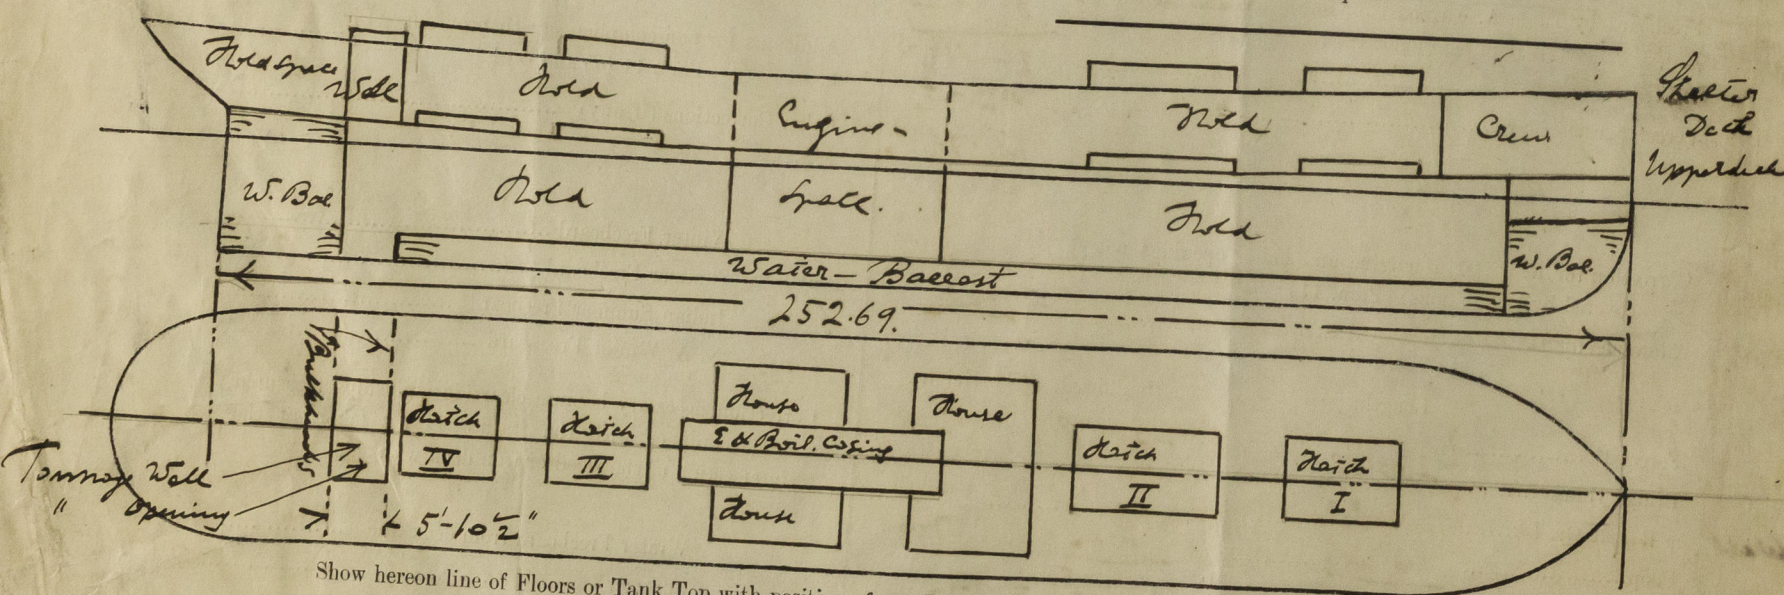 Hold space
Well
Hold
Engine-
Hold
Crew
Shelter
Deck
Upperdeck
W. Bal.
Hold
Space.
Hold
W. Bal.
Water-Ballast
252.69.
Bulkheads
Hatch
IV
Hatch
III
House
E & Boil. Casing
House
House
Hatch
II
Hatch
I
Tonnage Well
" Opening
5'-10½"
Show hereon line of Floors or Tank Top with